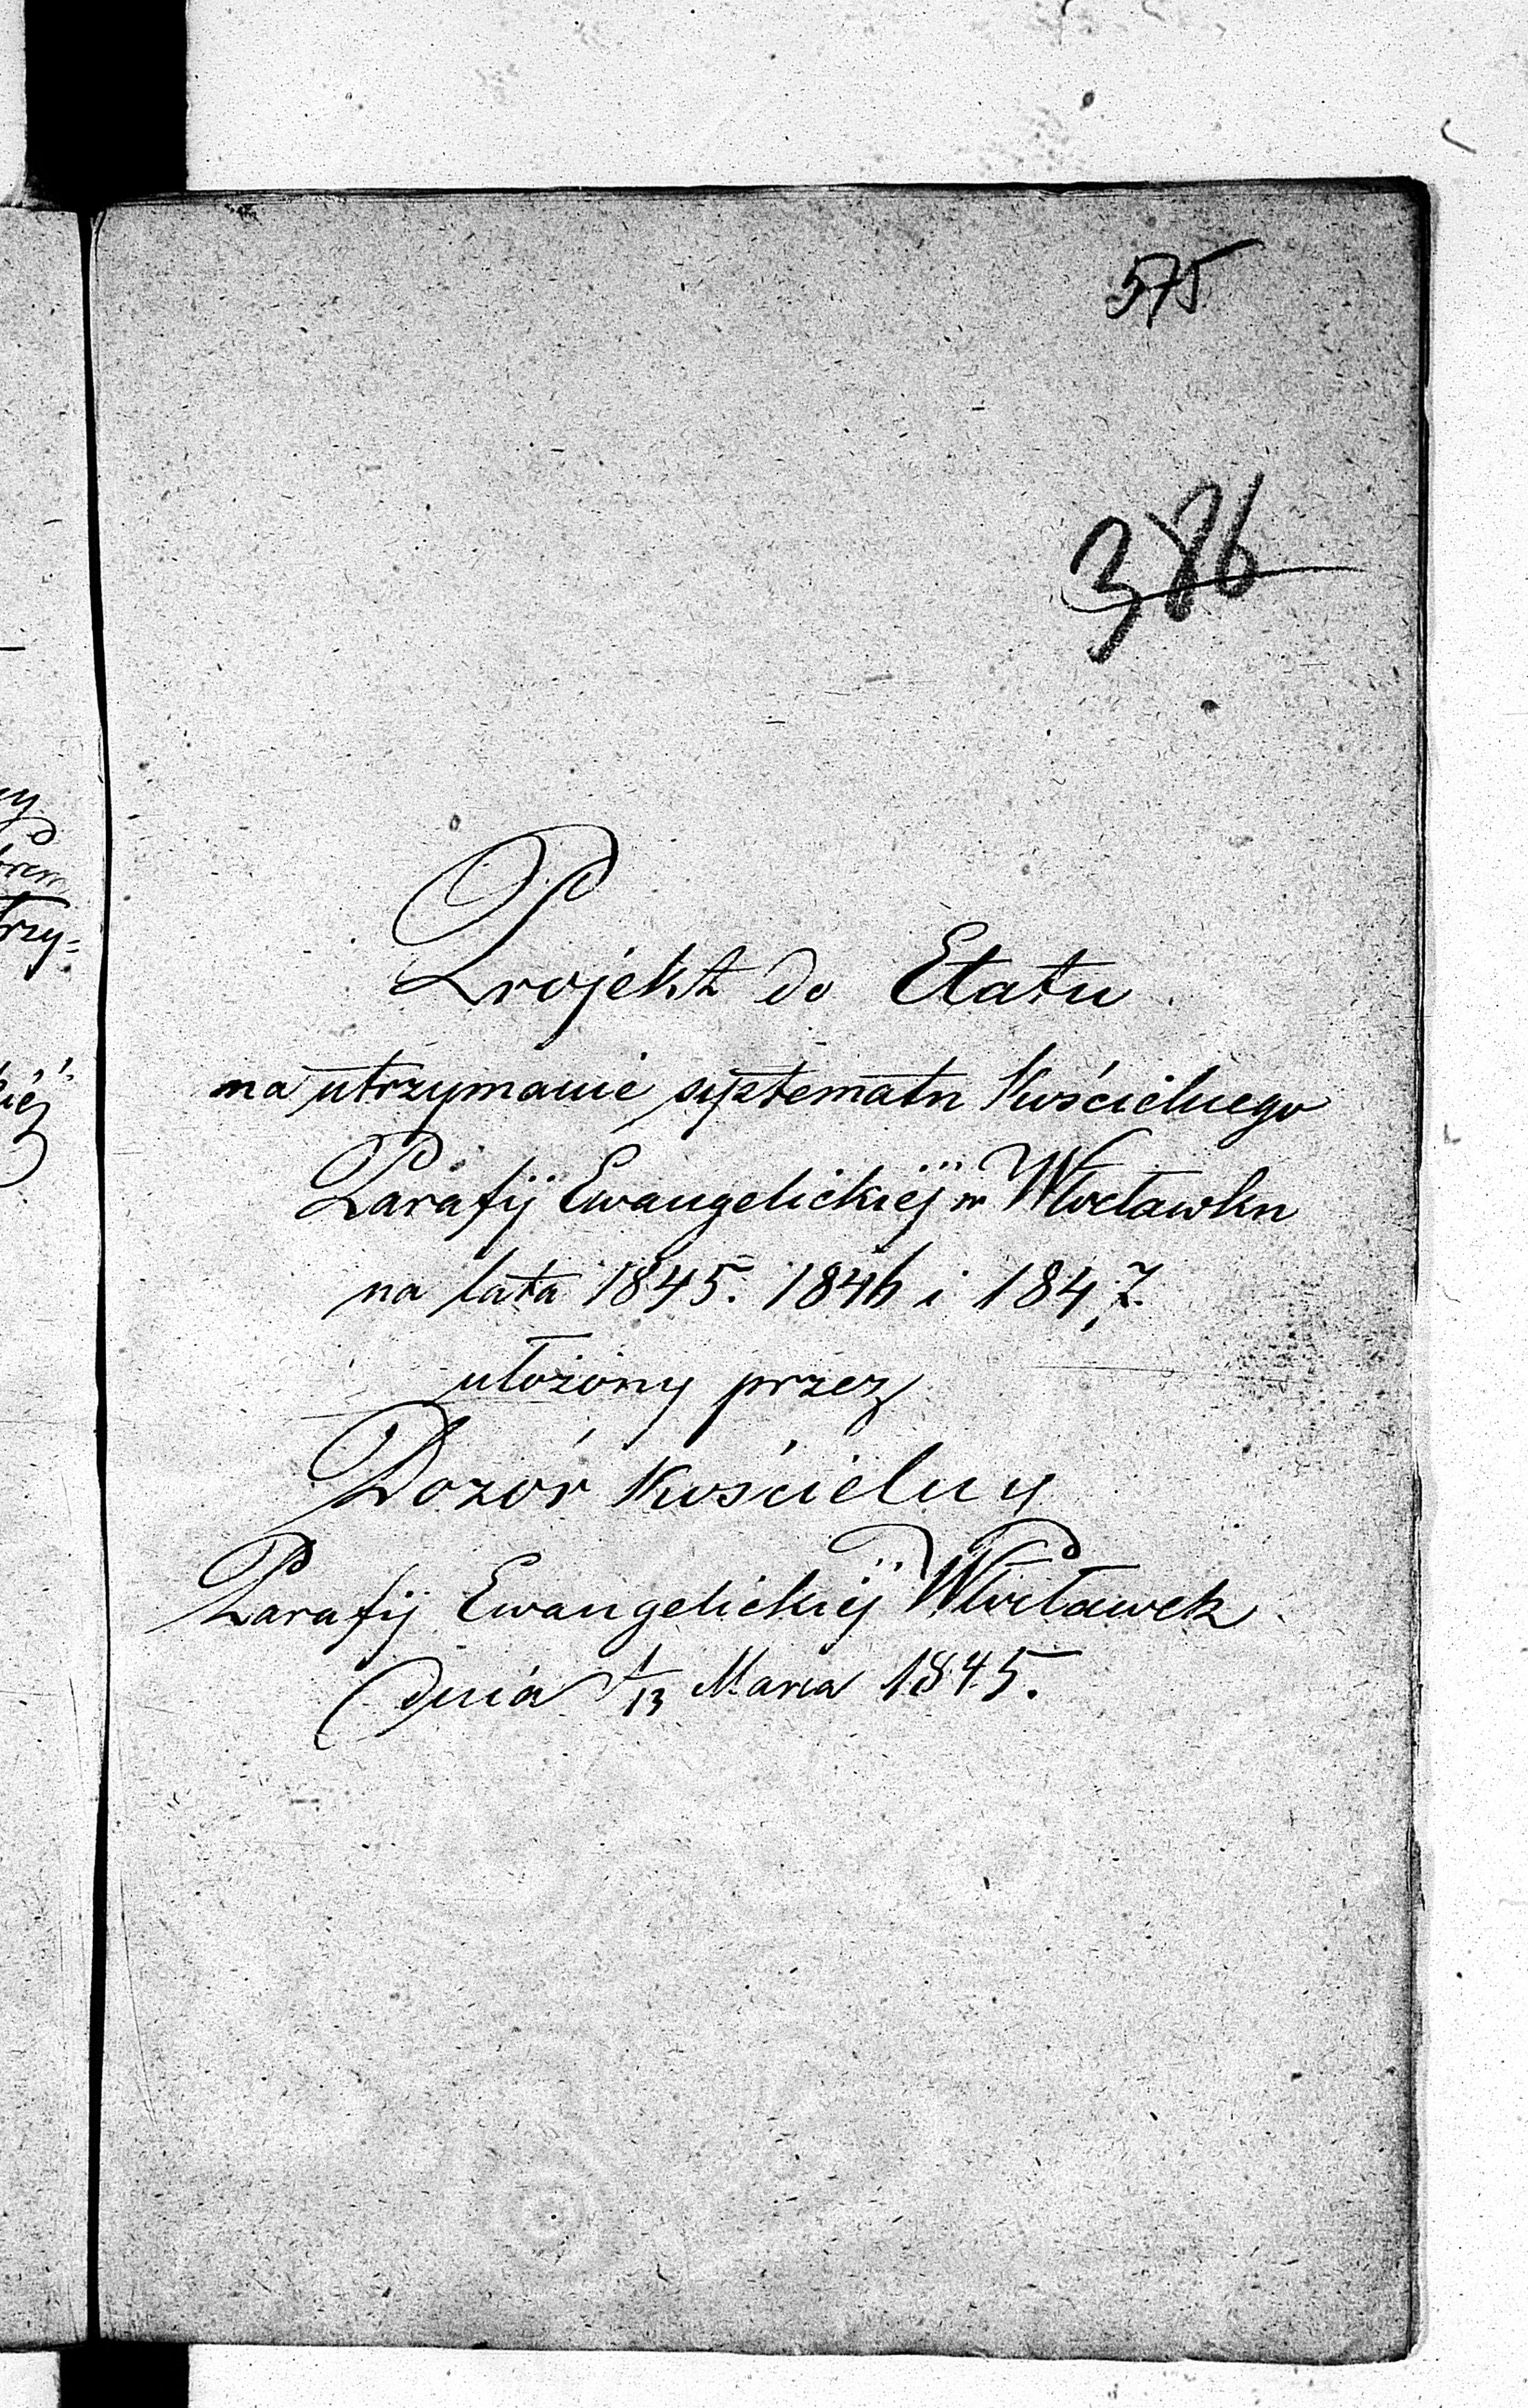 575
386
Projekt do Etatu
na utrzymanie systematu Kościelnego
Parafij Ewangelickiej w Włocławku
na lata 1845. 1846 i 1847.
ułożony przez
Dozór Kościelny
Parafij Ewangelickiej Włocławek
Dnia 1/13 Marca 1845.